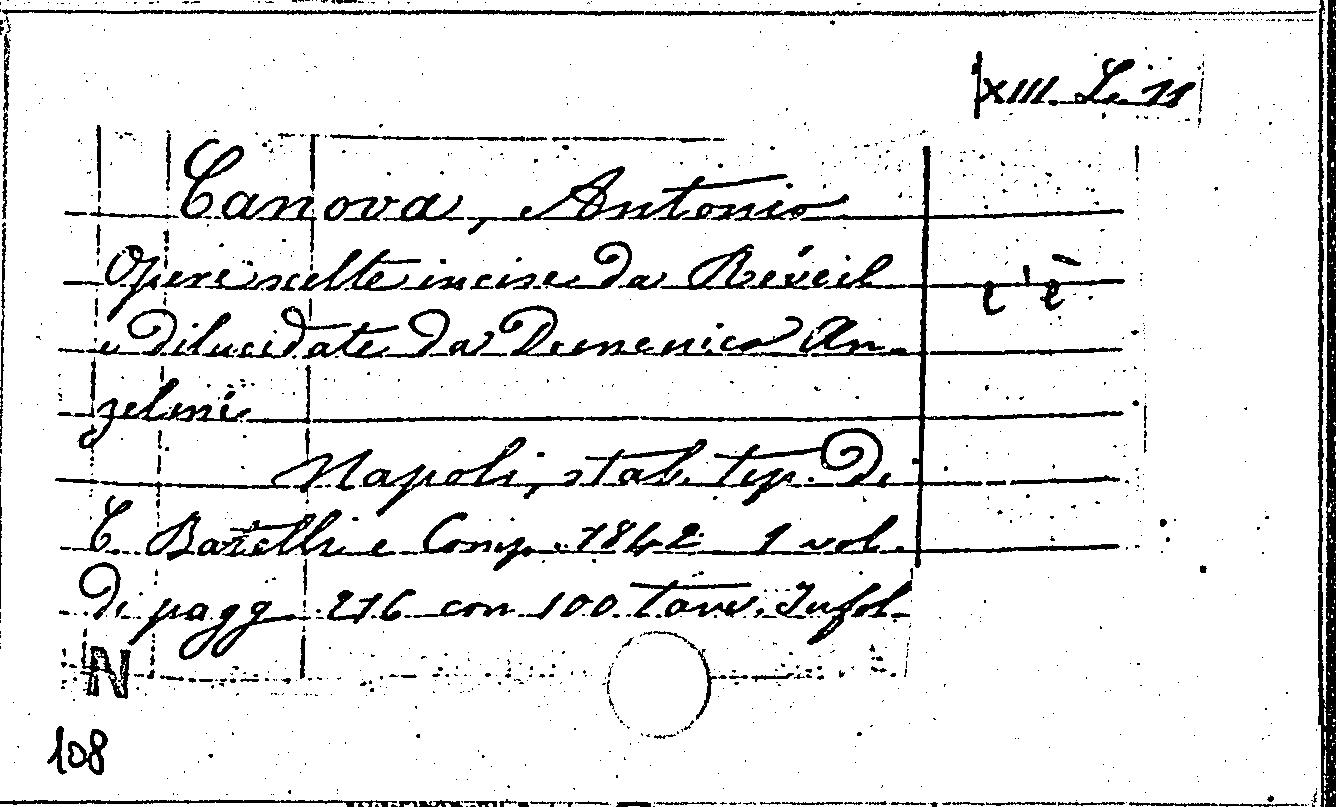 XIII. L. 11
Canova, Antonio
Opere scelte incise da Réveil
c'è
e dilucidate da Domenico An-
zelmi
Napoli, stab. tip. di
C. Batelli e Comp. 1842 1 vol.
di pagg. 276 con 100 tavv. In fol.
N
108